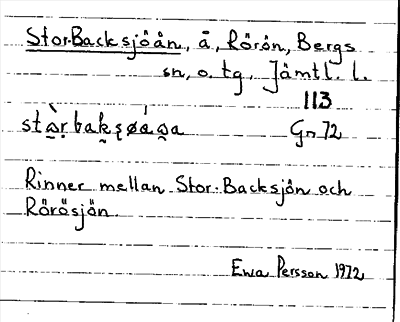 Stor-Backsjöån, å, Rörön, Bergs
sn, o. tg. Jämtl. l.
113
Gr 72
Rinner mellan Stor-Backsjön och
Rörösjön.
Ewa Persson 1972